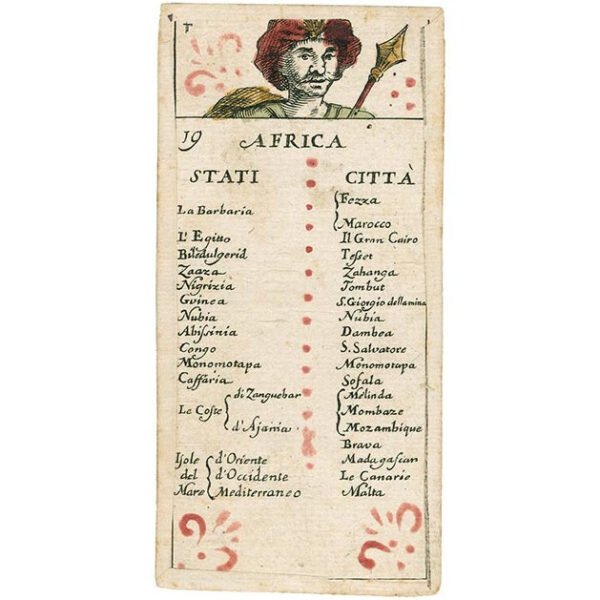 T
19 AFRICA
STATI CITTÀ
La Barbaria Fezza
Marocco
L'Egitto Il Gran Cairo
Biledulgerid Tesset
Zaara Zahanga
Nigrizia Tombut
Guinea S. Giorgio della mina
Nubia Nubia
Abissinia Dambea
Congo S. Salvatore
Monomotapa Monomotapa
Caffaria Sofala
Le Coste di Zanguebar Melinda
Mombaze
d'Ajania Mozambique
Brava
Isole d'Oriente Madagascar
del d'Occidente Le Canarie
Mare Mediterraneo Malta